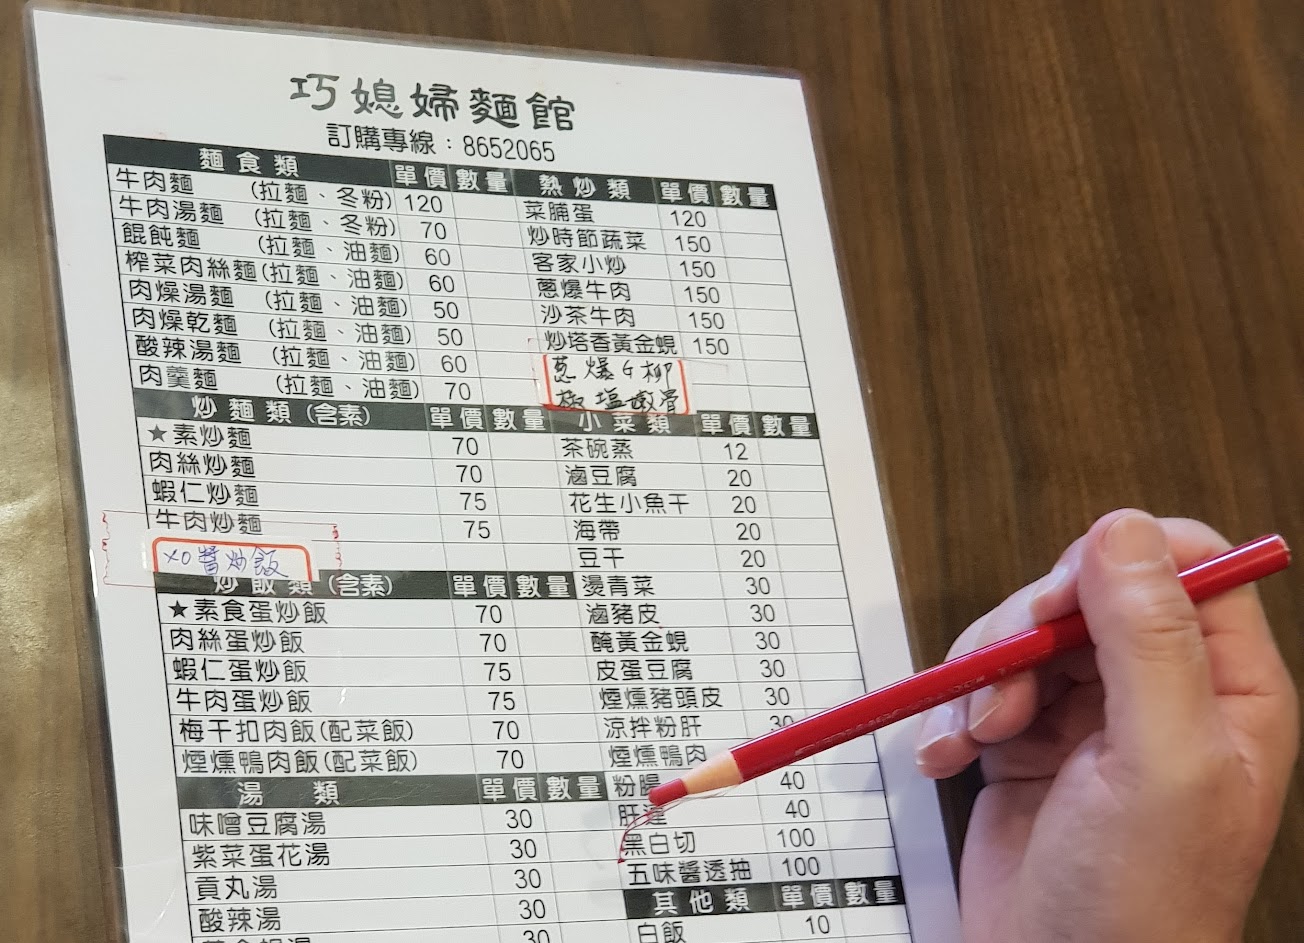 巧媳婦麵館
訂購專線：8652065
麵食類 單價 數量
牛肉麵 (拉麵、冬粉) 120
牛肉湯麵 (拉麵、冬粉) 70
餛飩麵 (拉麵、油麵) 60
榨菜肉絲麵(拉麵、油麵) 60
肉燥湯麵 (拉麵、油麵) 50
肉燥乾麵 (拉麵、油麵) 50
酸辣湯麵 (拉麵、油麵) 60
肉羹麵 (拉麵、油麵) 70
炒麵類(含素) 單價 數量
★素炒麵 70
肉絲炒麵 70
蝦仁炒麵 75
牛肉炒麵 75
XO醬炒飯
炒飯類(含素) 單價 數量
★素食蛋炒飯 70
肉絲蛋炒飯 70
蝦仁蛋炒飯 75
牛肉蛋炒飯 75
梅干扣肉飯(配菜飯) 70
煙燻鴨肉飯(配菜飯) 70
湯類 單價 數量
味噌豆腐湯 30
紫菜蛋花湯 30
貢丸湯 30
酸辣湯 30
30
熱炒類 單價 數量
菜脯蛋 120
炒時節蔬菜 150
客家小炒 150
蔥爆牛肉 150
沙茶牛肉 150
炒塔香黃金蜆 150
蔥爆牛柳
椒塩嫩骨
小菜類 單價 數量
茶碗蒸 12
滷豆腐 20
花生小魚干 20
海帶 20
豆干 20
燙青菜 30
滷豬皮 30
醃黃金蜆 30
皮蛋豆腐 30
煙燻豬頭皮 30
涼拌粉肝 30
煙燻鴨肉
粉腸 40
肝連 40
黑白切 100
五味醬透抽 100
其他類 單價 數量
白飯 10